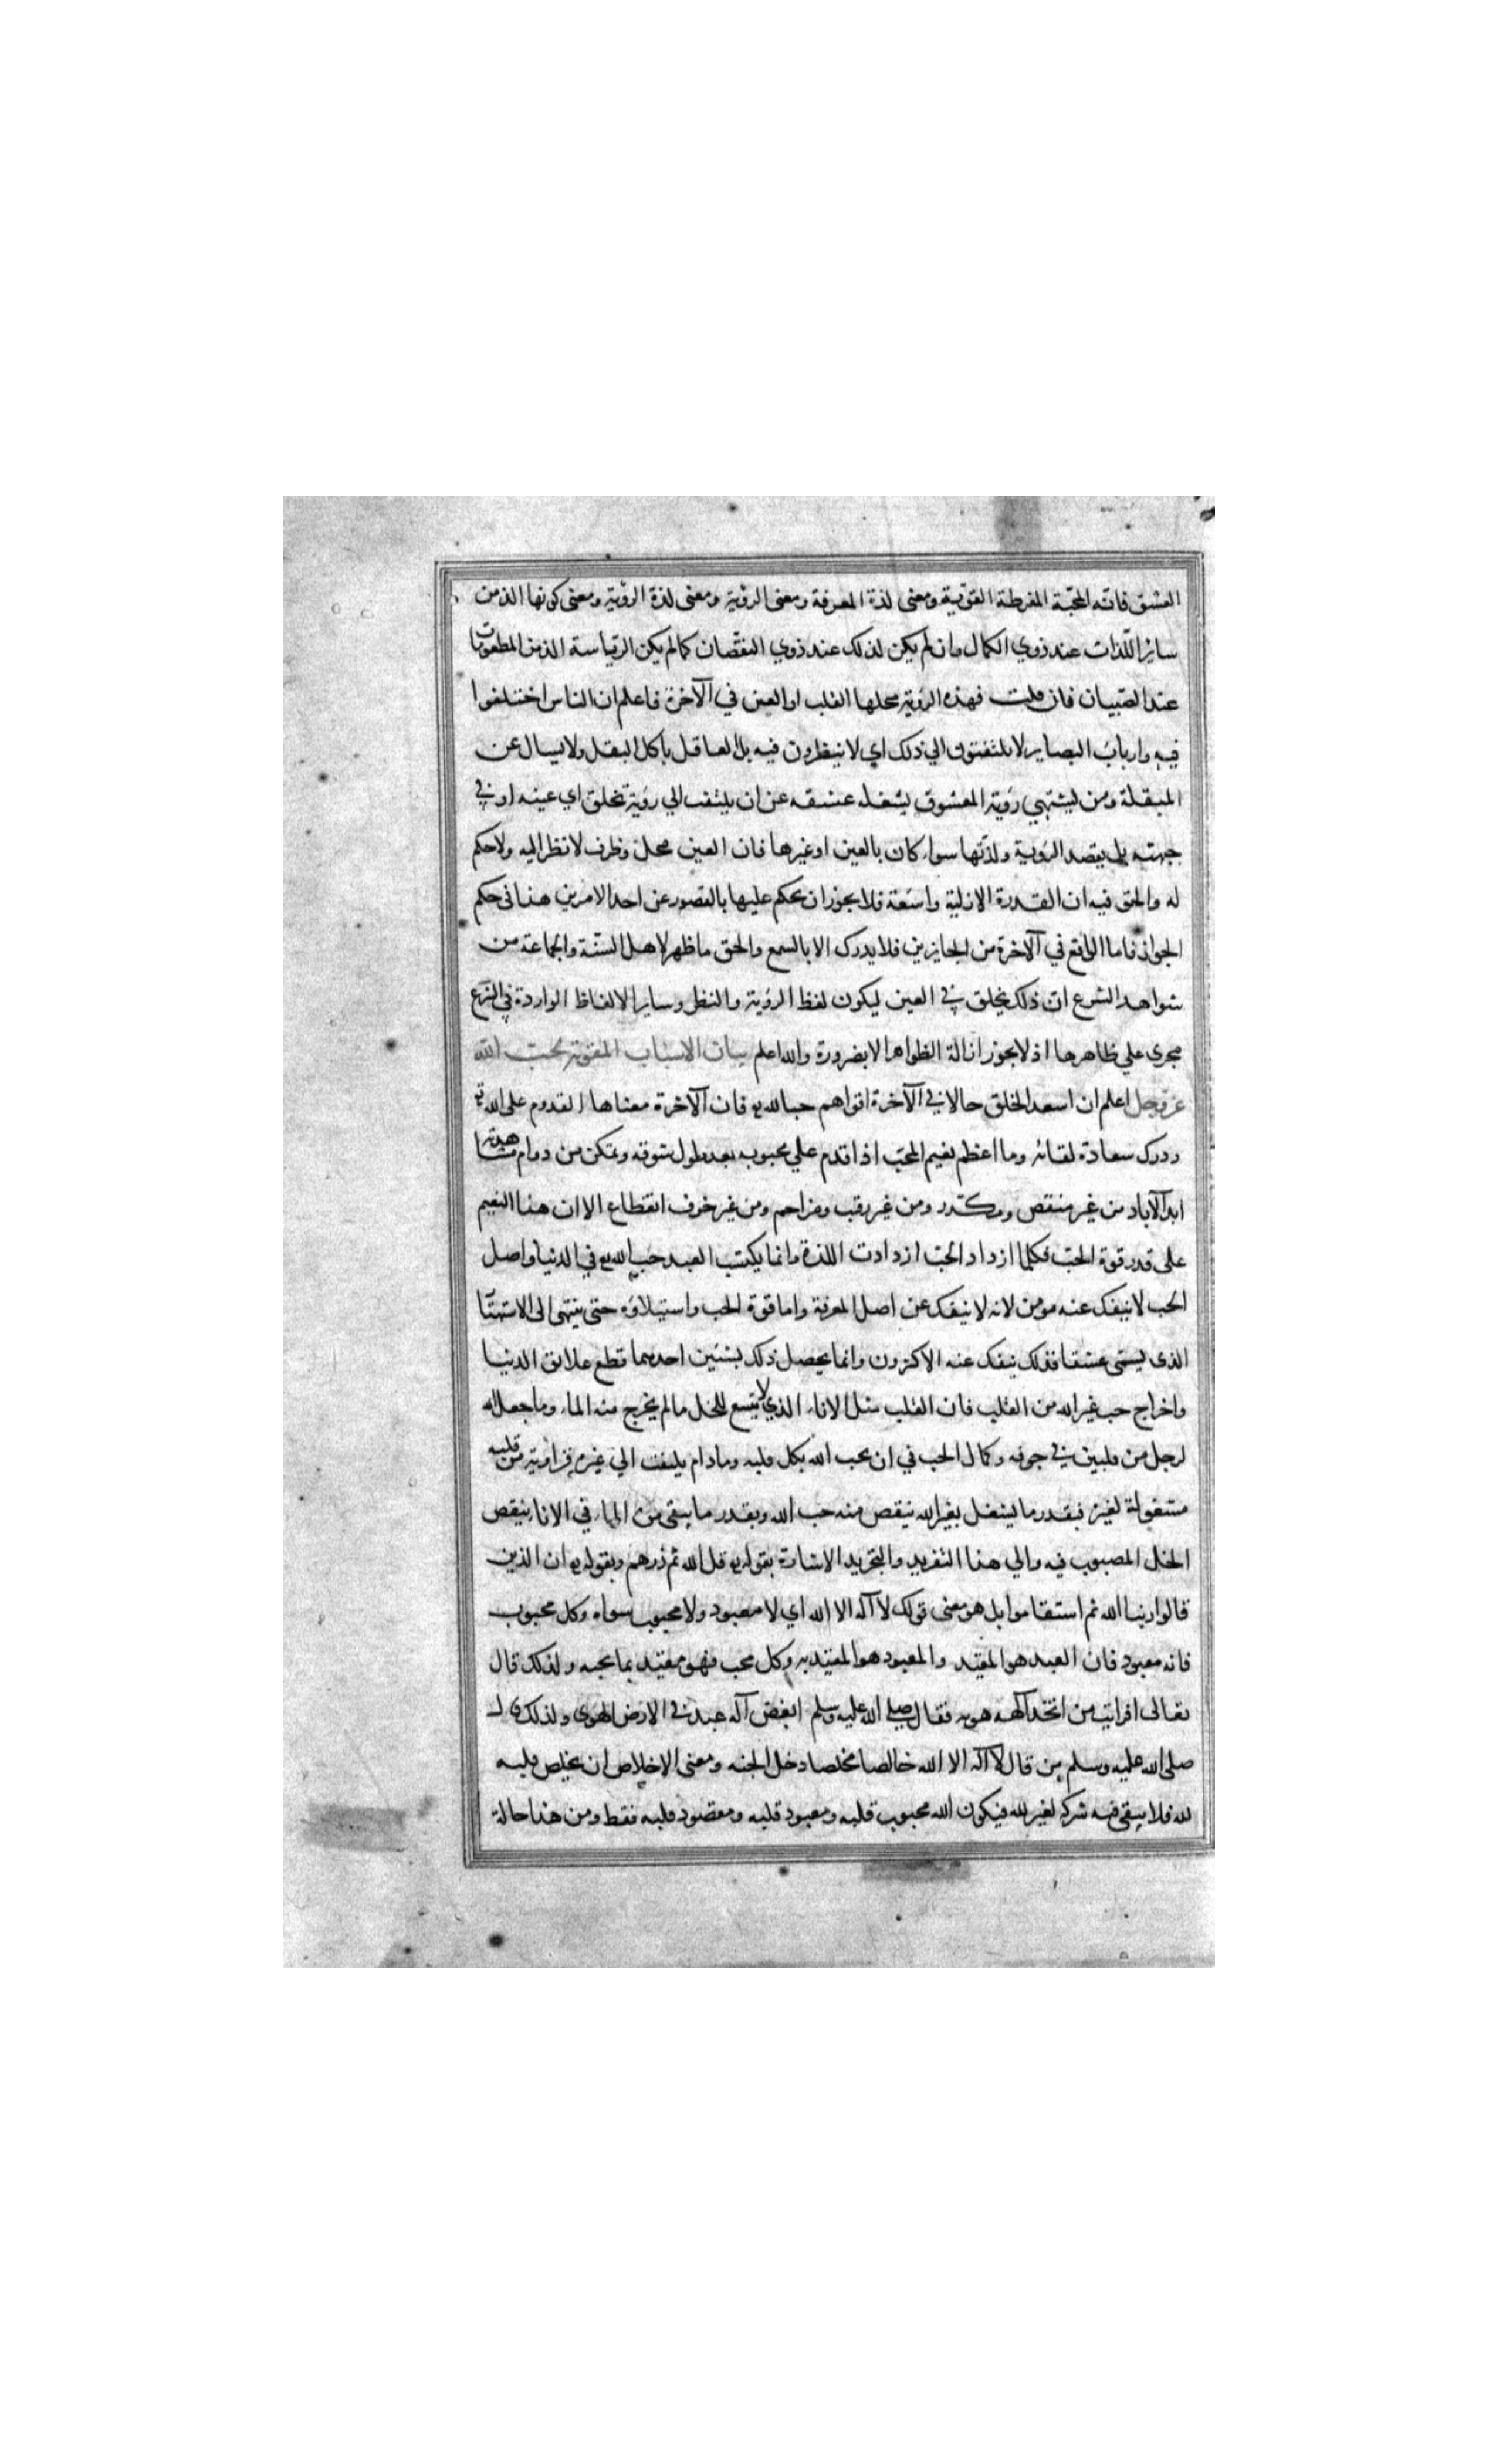 العشق فانه المحبّة المفرطة القوّية ومعنى لذة المعرفة ومعنى الرؤية ومعنى لذة الرؤية ومعنى كونها الذ من
ساير اللّذات عند ذوي الكمال وان لم يكن لذلك عند ذوي النقصان كما لم يكن الرياسة الذ من المطعومات
عند الصّبيان فان قلت فهذه الرؤية محلها القلب او العين في الآخرة فاعلم ان الناس اختلفوا
فيه وارباب البصاير لا يلتفتون الي ذلك اي لا ينظرون فيه بل العاقل يأكل البقل ولا يسال عن
المبقلة ومن يشتهي رؤية المعشوق يشغله عشقه عن ان يلتفت الي رؤية تخلق اي عينه او في
جبهته بل يقصد الرؤية ولذّتها سواء كان بالعين او غيرها فان العين محل وظرف لا نظر اليه ولا حكم
له والحق فيه ان القدرة الازلية واسعة فلا يجوز ان يحكم عليها بالقصور عن احد الامرين هذا في حكم
الجواز فاما الواقع في الآخرة من الجايزين فلا يدرك الا بالسمع والحق ما ظهر لاهل السّنّة والجماعة من
شواهد الشرع ان ذلك يخلق في العين ليكون لفظ الرؤية والنظر وساير الالفاظ الواردة في الشرع
مجرى علي ظاهرها اذ لا يجوز ازالة الظواهر الا بضرورة والله اعلم بيان الاسباب المقوية لحب الله
عز وجل اعلم ان اسعد الخلق حالا في الآخرة اقواهم حبا لله تع فان الآخرة معناها القدوم على الله تع
ودرك سعادة لقائه وما اعظم نعيم المحبّ اذا قدم علي محبوبه بعد طول شوقه وتمكن من دوام مشاهدته
ابد الآباد من غير منغص ومكدّر ومن غير رقيب ومزاحم ومن غير خوف انقطاع الا ان هذا النعيم
على قدر قوة الحبّ فكلما ازداد الحبّ ازدادت اللذة وانما يكتسب العبد حب الله تع في الدنيا واصل
الحب لا ينفك عنه مومن لانه لا ينفك عن اصل المعرفة واما قوة الحب واستيلاؤه حتى ينتهى الى الاستهتا
الذى يسمّى عشقا فذلك ينفك عنه الاكثرون وانما يحصل ذلك بشئين احدهما قطع علايق الدنيا
واخراج حب غير الله من القلب فان القلب مثل الاناء الذي لا يتسع للخل ما لم يخرج منه الماء وما جعل الله
لرجل من قلبين في جوفه وكمال الحب في ان يحب الله بكل قلبه وما دام يلتفت الي غيره فزاوية من قلبه
مشغولة لغيره فبقدر ما يشغل بغير الله ينقص منه حب الله وبقدر ما يبقى من الماء في الاناء ينقص
الخل المصبوب فيه والي هذا التفريد والتجريد الاشارة بقوله تع قل الله ثم ذرهم وبقوله تع ان الذين
قالوا ربنا الله ثم استقاموا بل هو معنى قولك لا آله الا الله اي لا معبود ولا محبوب سواه وكل محبوب
فانه معبود فان العبد هو المقيّد والمعبود هو المقيّد به وكل محب فهو مقيّد بما يحبه ولذلك قال
تعالى افرايت من اتّخذ آلهه هويه فقال صلي الله عليه وسلم ابغض آله عبد في الارض الهوى ولذلك قال
صلى الله عليه وسلم من قال لا آله الا الله خالصا مخلصا دخل الجنه ومعنى الاخلاص ان يخلص قلبه
لله فلا يبقى فيه شركه لغير لله فيكون الله محبوب قلبه ومعبود قلبه ومقصود قلبه فقط ومن هذا حالة